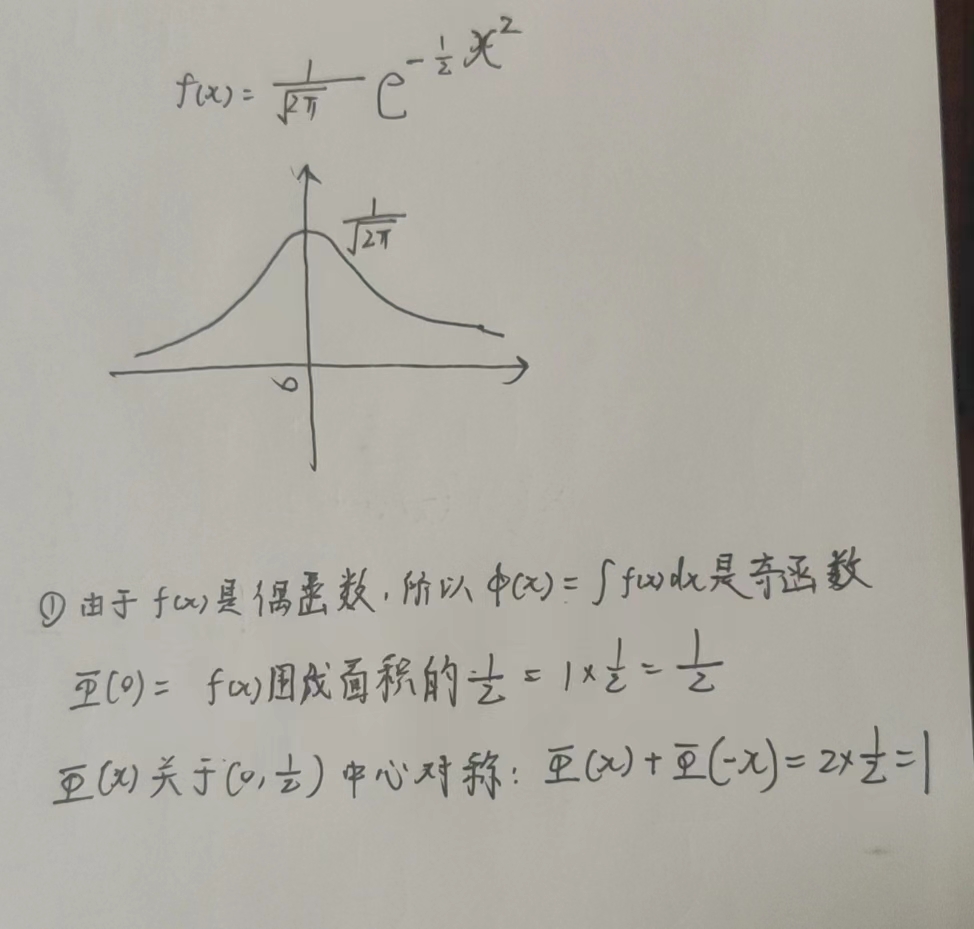 f(x) = 1/√2π e^(-1/2 x²)
1/√2π
0
① 由于 f(x) 是偶函数, 所以 φ(x) = ∫f(x)dx 是奇函数
Φ(0) = f(x)围成面积的 1/2 = 1×1/2 = 1/2
Φ(x) 关于(0, 1/2) 中心对称: Φ(x)+Φ(-x) = 2×1/2 = 1